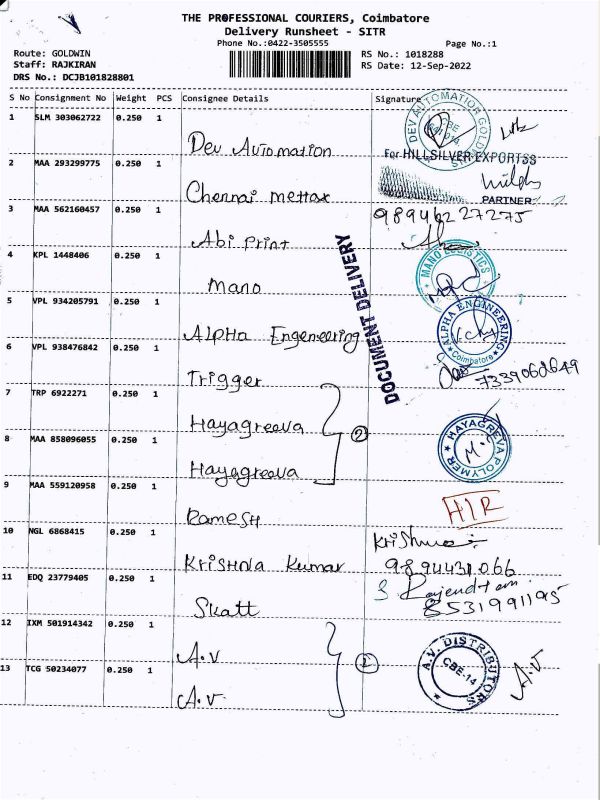 THE PROFESSIONAL COURIERS, Coimbatore
Delivery Runsheet - SITR
Phone No.:0422-3505555
Page No.:1
Route: GOLDWIN
Staff: RAJKIRAN
DRS No.: DCJB101828801
RS No.: 1018288
RS Date: 12-Sep-2022
S No Consignment No Weight PCS Consignee Details Signature
1 SLM 303062722 0.250 1 Dev Automation
DEV AUTOMATION
2 MAA 293299775 0.250 1 Chennai Mettax
For HILLSILVER EXPORTSS
PARTNER
3 MAA 562160457 0.250 1 Abi Print
9894627275
4 KPL 1448406 0.250 1 Mano
MANO LOGISTICS
DOCUMENT DELIVERY
5 VPL 934205791 0.250 1 Alpha Engeneering
ALPHA ENGINEERING
Coimbatore
6 VPL 938476842 0.250 1 Trigger
7339060649
7 TRP 6922271 0.250 1 Hayagreeva
8 MAA 858096055 0.250 1 Hayagreeva
②
HAYAGREVA POLYMER
9 MAA 559120958 0.250 1 Ramesh
H/R
10 NGL 6868415 0.250 1 Krishna Kumar
9894431066
11 EDQ 23779405 0.250 1 Skatt
8531991195
12 IXM 501914342 0.250 1 A.V
13 TCG 50234077 0.250 1 A.V
②
A.V. DISTRIBUTORS
CBE-14
A.V